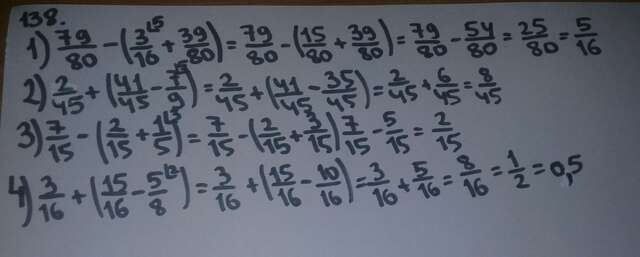 138.
1) 79/80 - (3/16^5 + 39/80) = 79/80 - (15/80 + 39/80) = 79/80 - 54/80 = 25/80 = 5/16
2) 2/45 + (41/45 - 7/9^5) = 2/45 + (41/45 - 35/45) = 2/45 + 6/45 = 8/45
3) 7/15 - (2/15 + 1/5^3) = 7/15 - (2/15 + 3/15) 7/15 - 5/15 = 2/15
4) 3/16 + (15/16 - 5/8^2) = 3/16 + (15/16 - 10/16) = 3/16 + 5/16 = 8/16 = 1/2 = 0,5